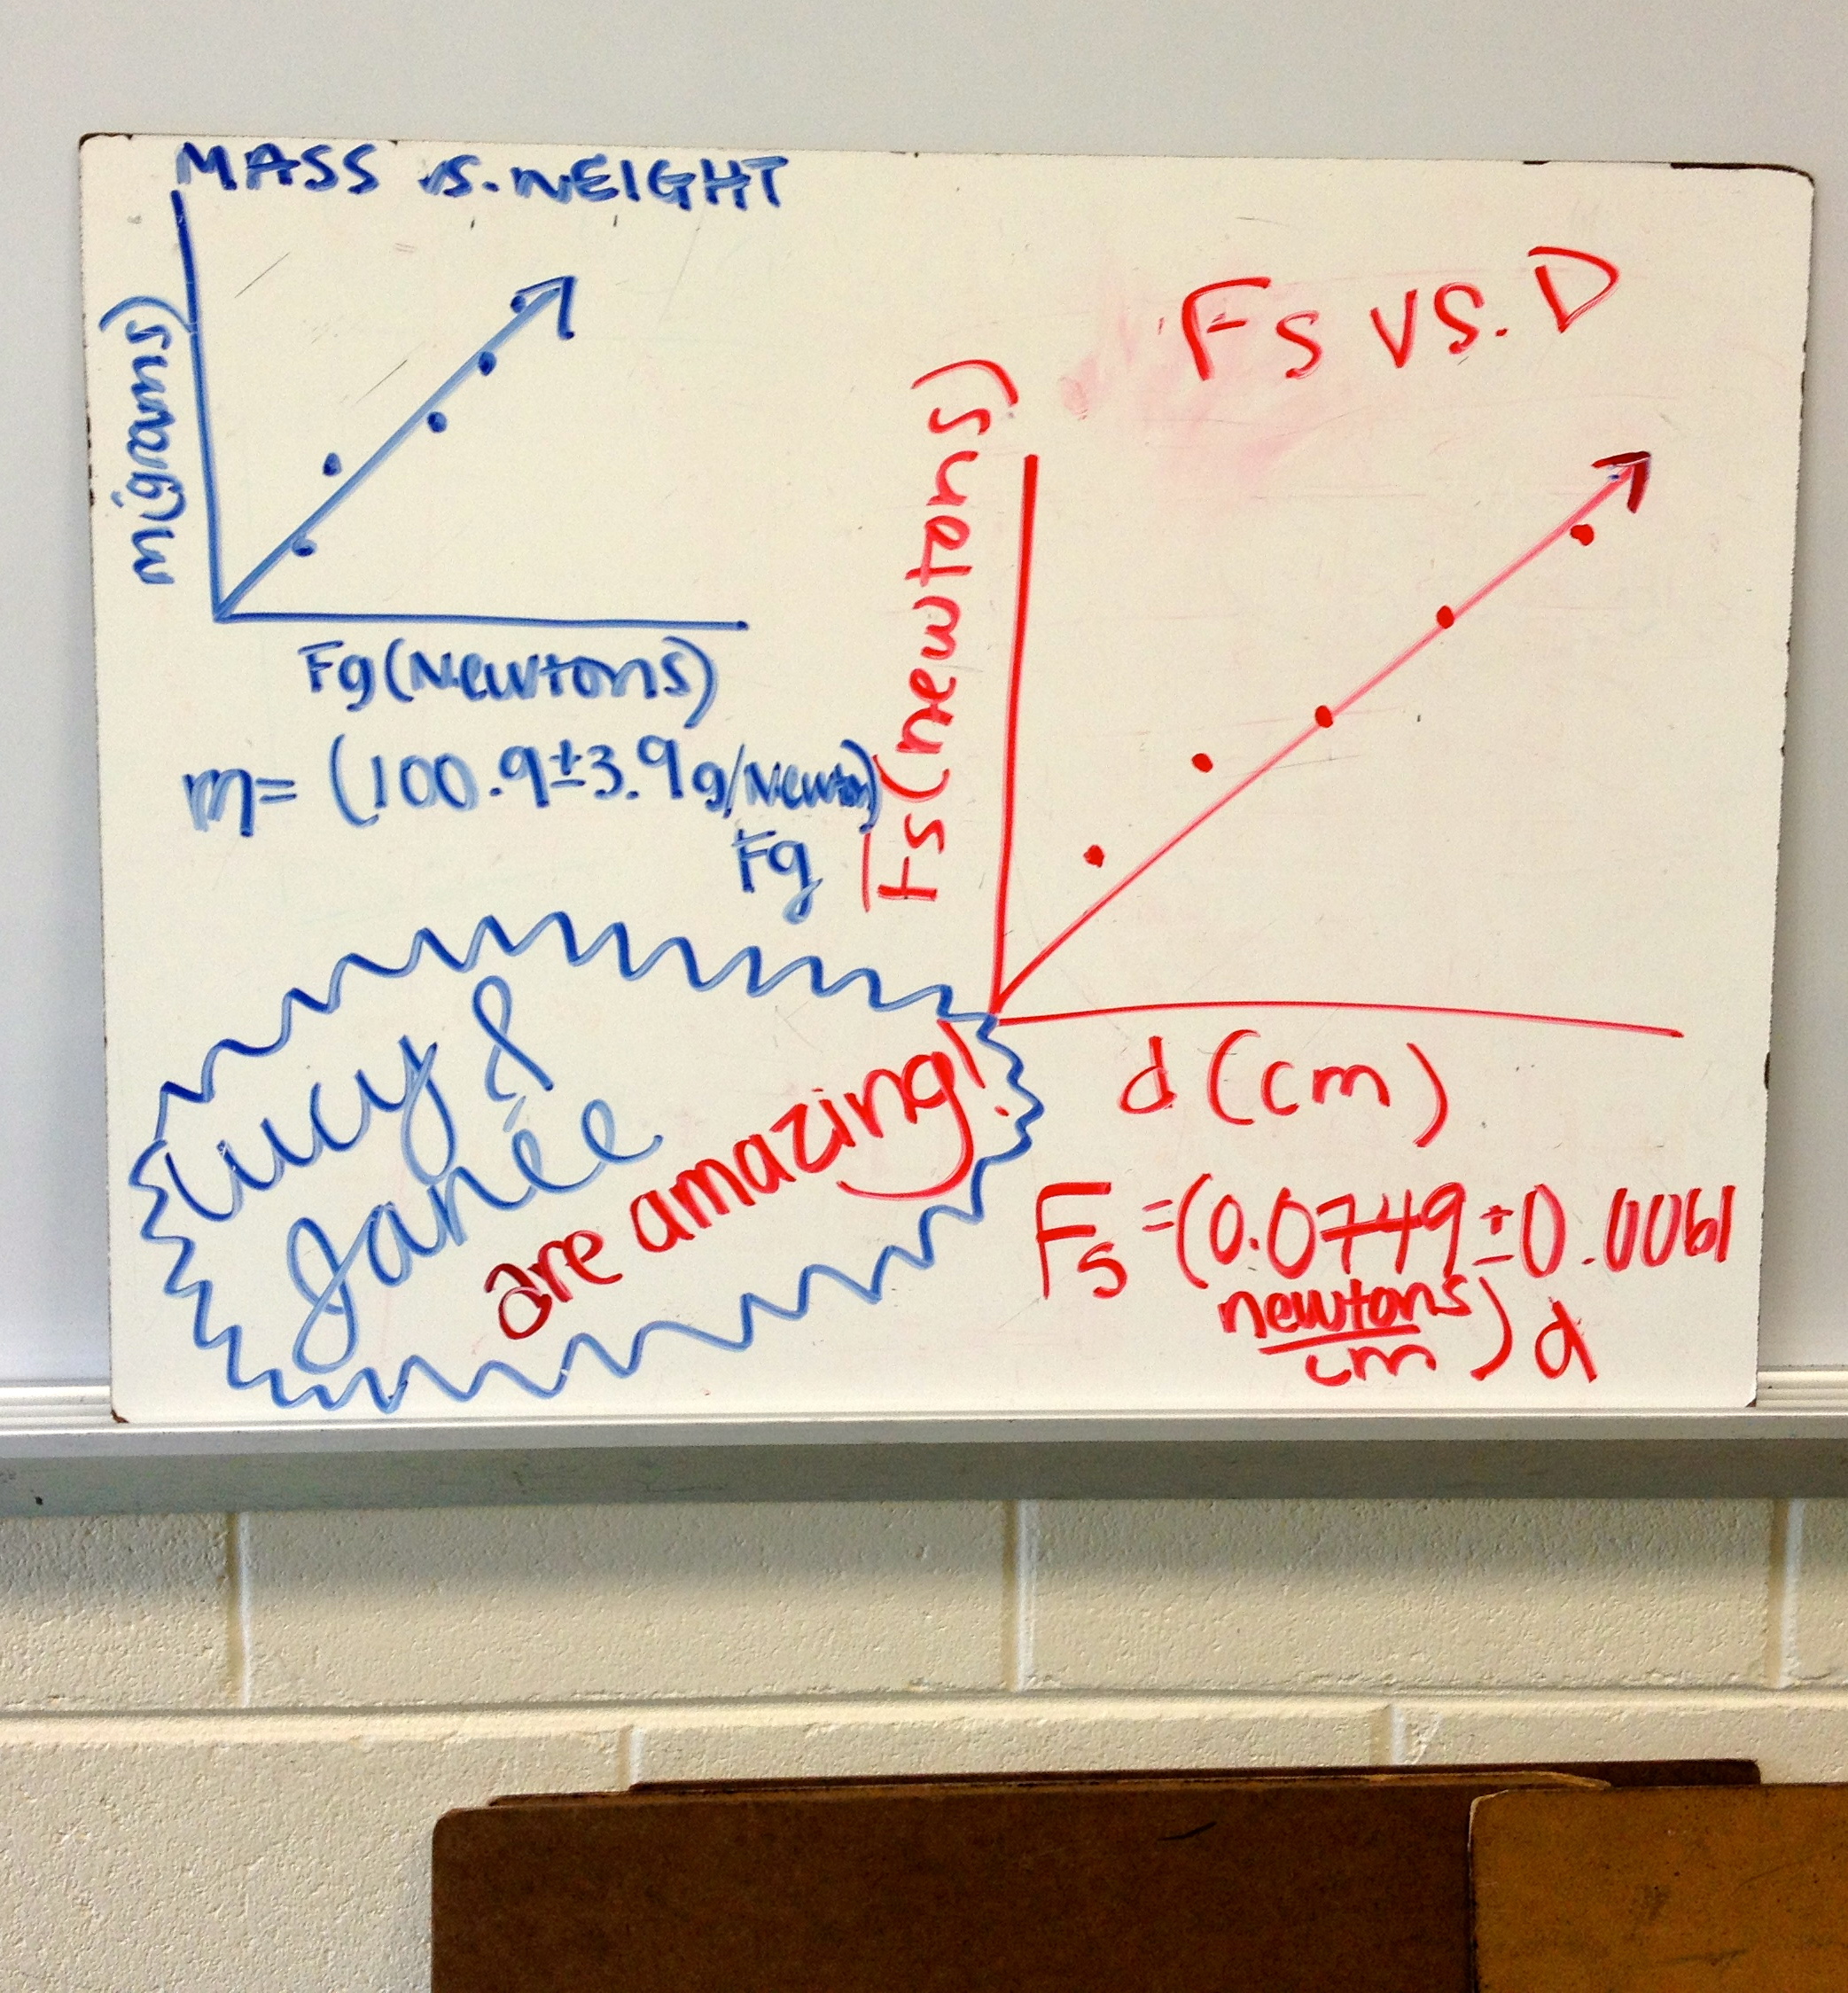 MASS vs. WEIGHT
m(grams)
Fg (Newtons)
m= (100.9±3.9 g/Newton)
Fg
Fs vs. D
Fs (newtons)
d (cm)
Fs =(0.0749 ±0.0061
newtons
cm ) d
Lucy &
Janée
are amazing!